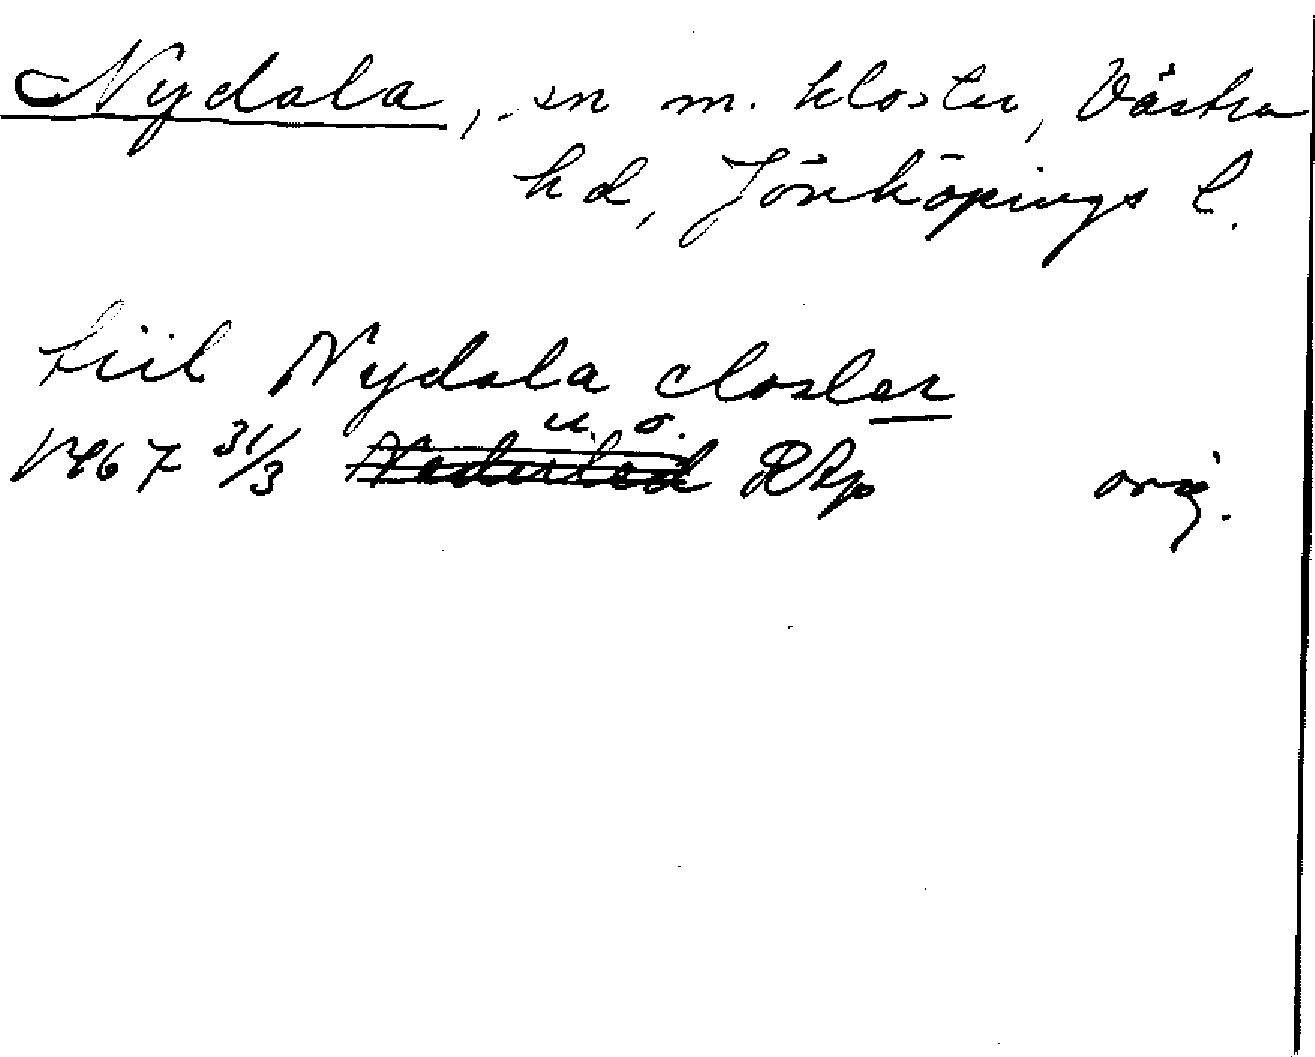 Nydala, sn m. kloster, Västra
hd, Jönköpings l.
tiil Nydala closter
u. o.
1467 31/3 Nederled RAp orig.